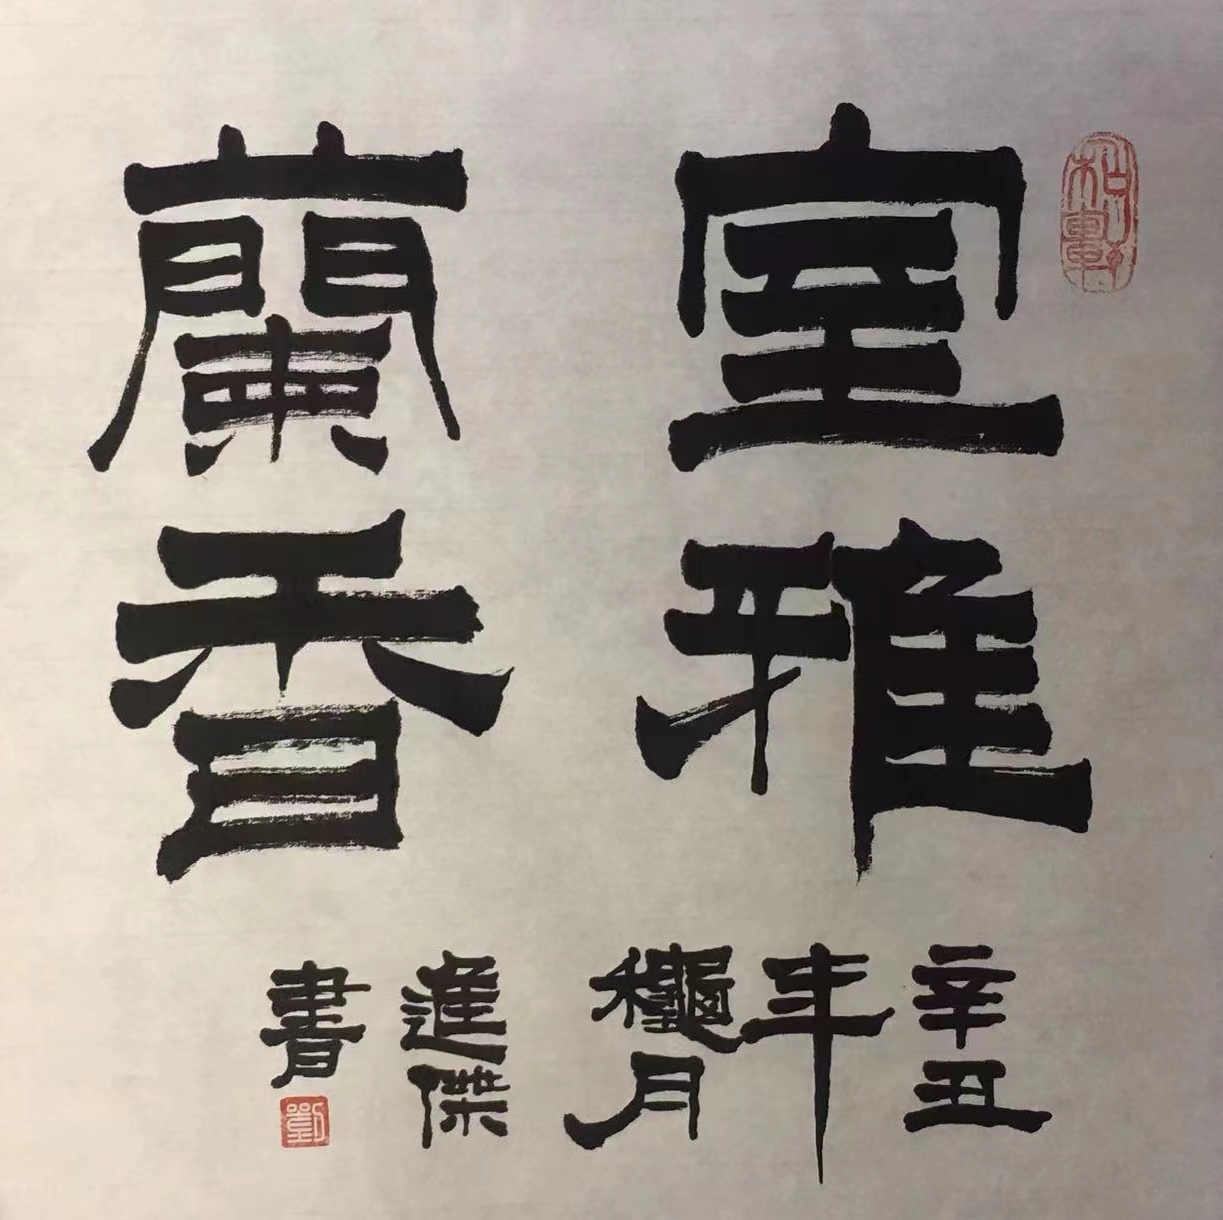 室雅
蘭香
辛丑
年
龝月
進傑
書
劉